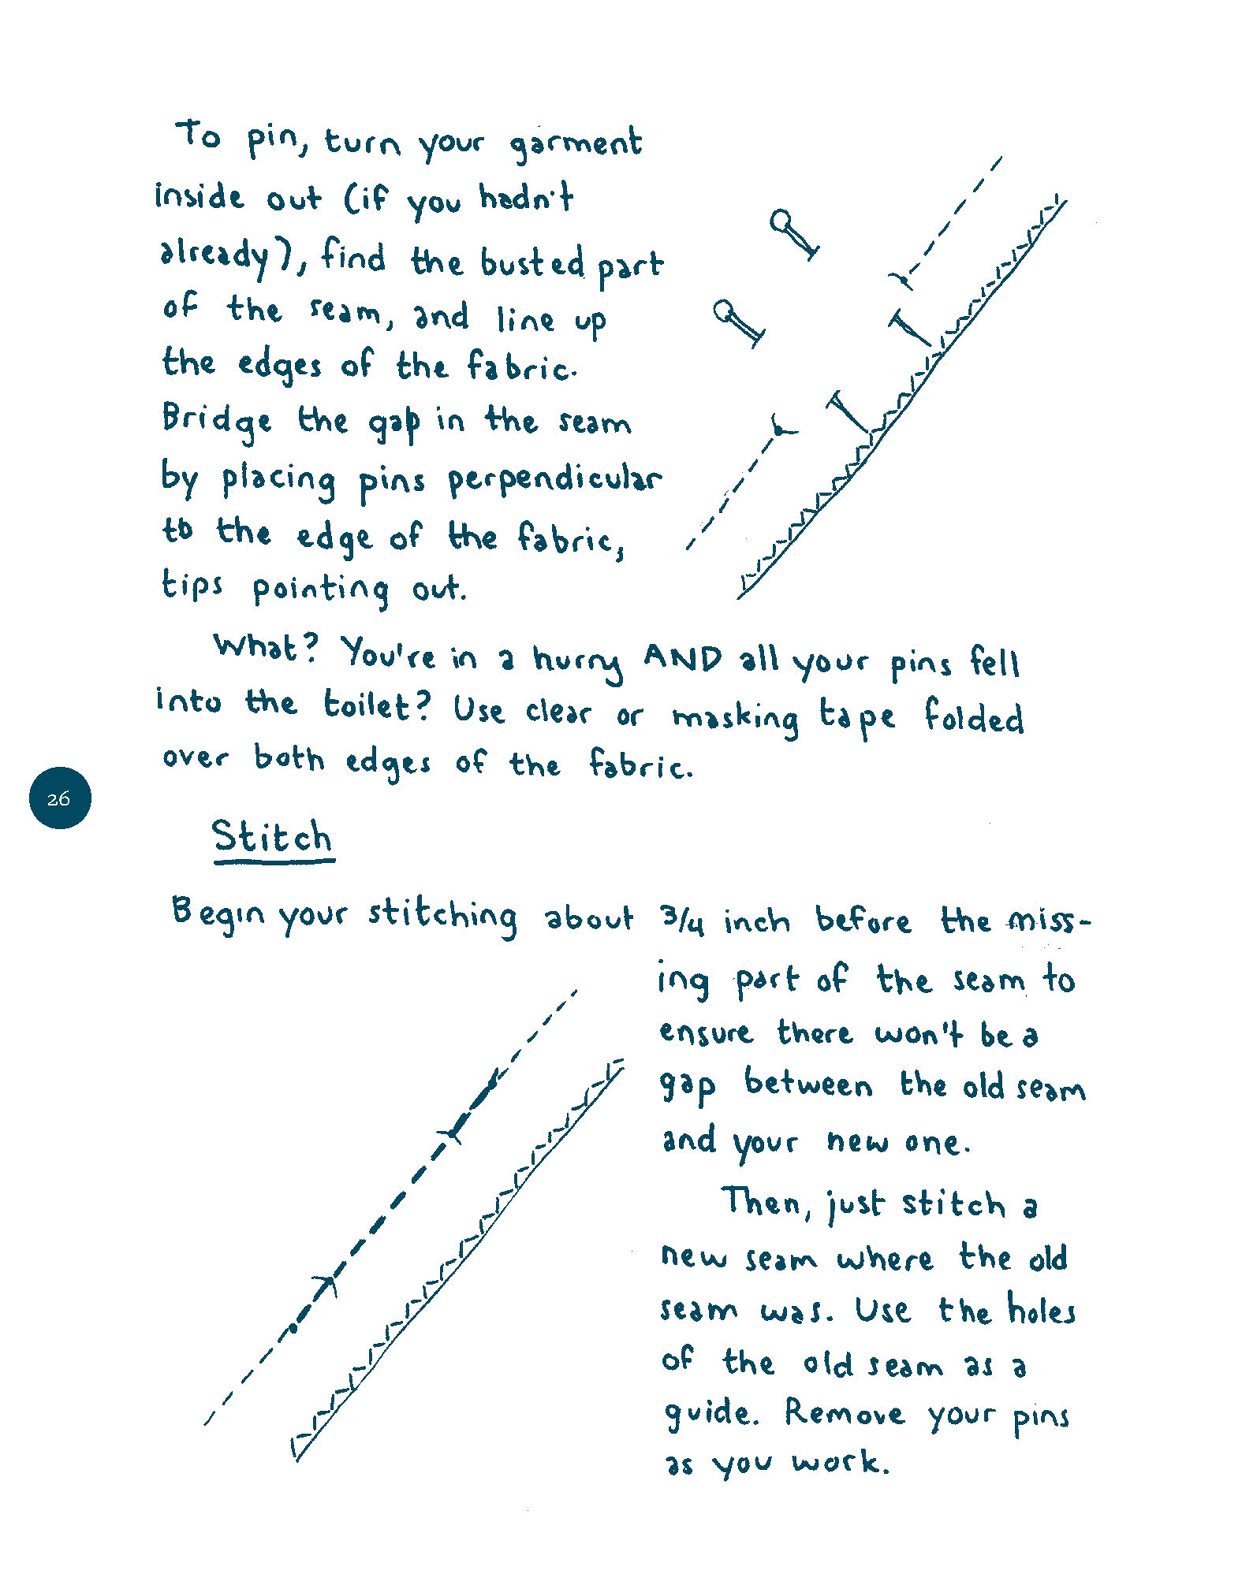 To pin, turn your garment
inside out (if you hadn't
already), find the busted part
of the seam, and line up
the edges of the fabric.
Bridge the gap in the seam
by placing pins perpendicular
to the edge of the fabric,
tips pointing out.
What? You're in a hurry AND all your pins fell
into the toilet? Use clear or masking tape folded
over both edges of the fabric.
26
Stitch
Begin your stitching about 3/4 inch before the miss-
ing part of the seam to
ensure there won't be a
gap between the old seam
and your new one.
Then, just stitch a
new seam where the old
seam was. Use the holes
of the old seam as a
guide. Remove your pins
as you work.